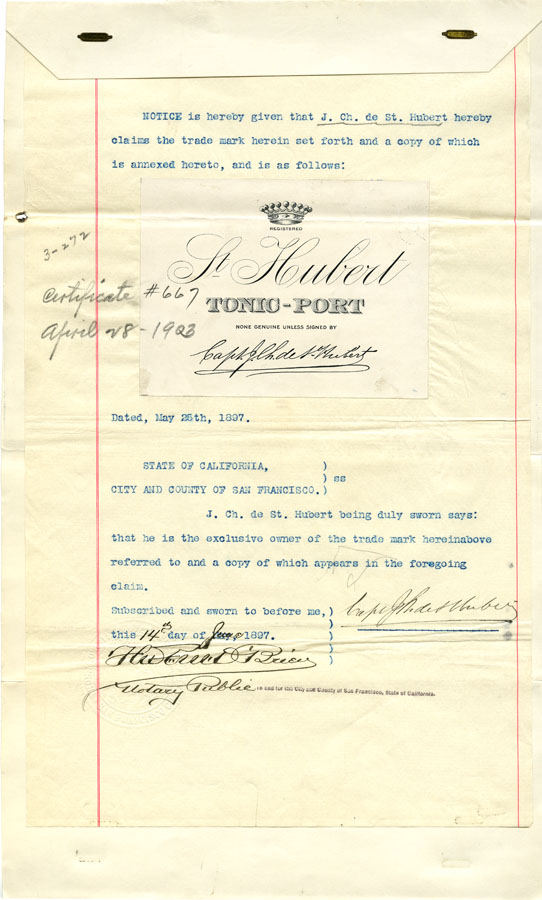 NOTICE is hereby given that J. Ch. de St. Hubert hereby
claims the trade mark herein set forth and a copy of which
is annexed hereto, and is as follows:
REGISTERED
3-272
St. Hubert
Certificate #667
TONIC-PORT
April 28-1903
NONE GENUINE UNLESS SIGNED BY
Capt. J. Ch. de St. Hubert
Dated, May 25th, 1897.
STATE OF CALIFORNIA, )
) ss
CITY AND COUNTY OF SAN FRANCISCO.)
J. Ch. de St. Hubert being duly sworn says:
that he is the exclusive owner of the trade mark hereinabove
referred to and a copy of which appears in the foregoing
claim.
Subscribed and sworn to before me,) Capt J Ch de St Hubert
this 14th day of June 1897. )
Notary Public in and for the City and County of San Francisco, State of California.